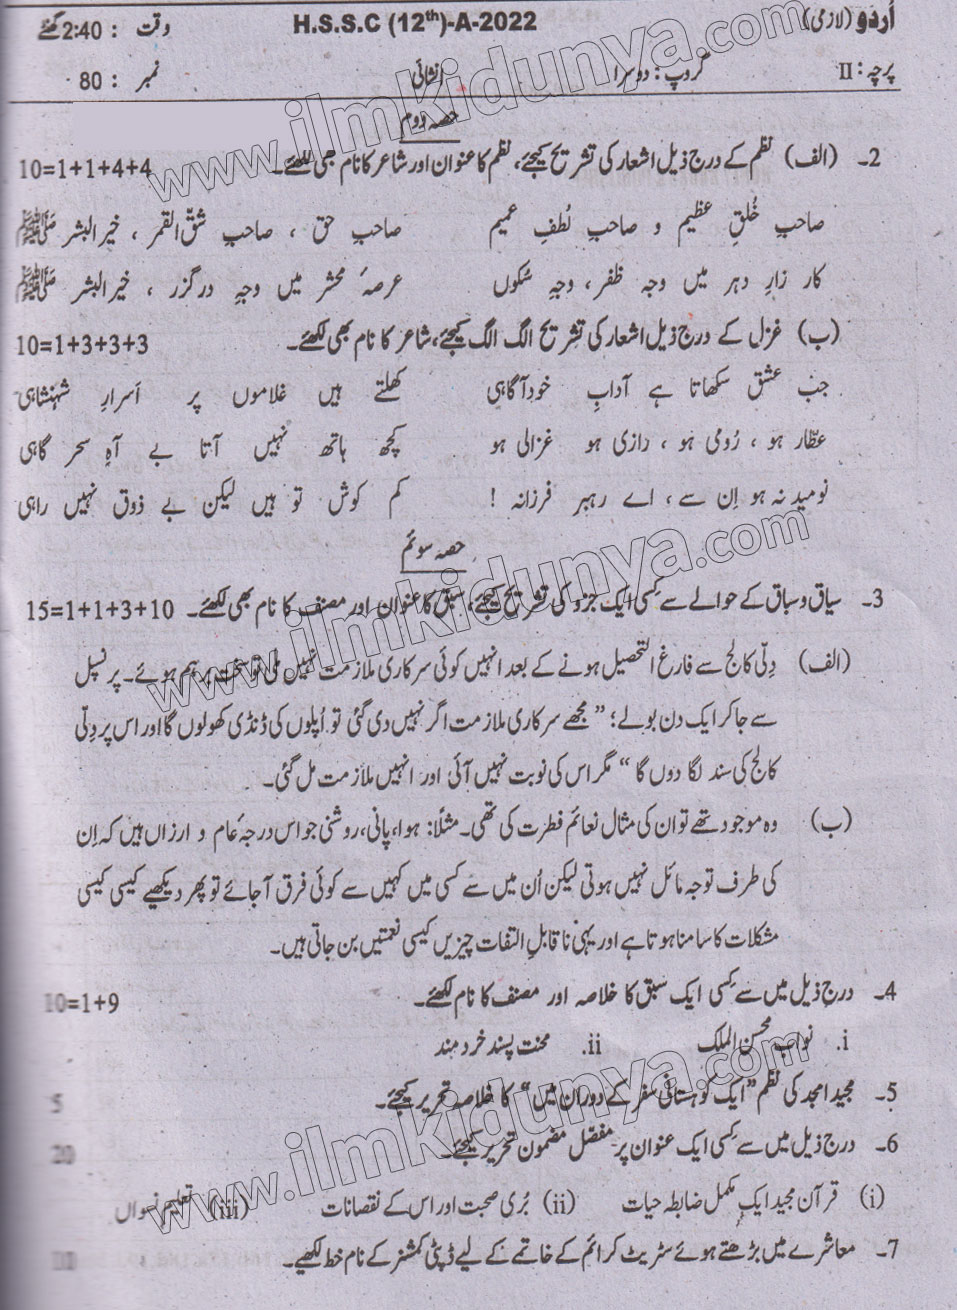 اُردو (لازمی) H.S.S.C (12th)-A-2022 وقت : 2:40 گھنٹے
پرچہ: II گروپ: دوسرا انشائی نمبر : 80
حصہ دوم
2۔ (الف) نظم کے درج ذیل اشعار کی تشریح کیجئے، نظم کا عنوان اور شاعر کا نام بھی لکھئے۔ 10=1+1+4+4
صاحبِ خُلقِ عظیم و صاحبِ لُطفِ عمیم صاحبِ حق ، صاحبِ شقّ القمر ، خیر البشر ﷺ
کار زارِ دہر میں وجہ ظفر، وجہِ سُکوں عرصۂ محشر میں وجہِ درگزر ، خیر البشر ﷺ
(ب) غزل کے درج ذیل اشعار کی تشریح الگ الگ کیجئے، شاعر کا نام بھی لکھئے۔ 10=1+3+3+3
جب عشق سکھاتا ہے آدابِ خود آگاہی کھلتے ہیں غلاموں پر اَسرارِ شہنشاہی
عطّار ہو ، رُومی ہو ، رازی ہو غزالی ہو کچھ ہاتھ نہیں آتا بے آہِ سحر گاہی
نومید نہ ہو اِن سے ، اے رہبرِ فرزانہ ! کم کوش تو ہیں لیکن بے ذوق نہیں راہی
حصہ سوئم
3۔ سیاق و سباق کے حوالے سے کِسی ایک جزو کی تشریح کیجئے، سبق کا عنوان اور مصنف کا نام بھی لکھئے۔ 15=1+1+3+10
(الف) دِلّی کالج سے فارغ التحصیل ہونے کے بعد انہیں کوئی سرکاری ملازمت نہیں ملی تو سخت برہم ہوئے۔ پرنسپل
سے جا کر ایک دن بولے؛ ”مجھے سرکاری ملازمت اگر نہیں دی گئی تو اُپلوں کی ڈنڈی کھولوں گا اور اس پر دِلّی
کالج کی سند لگا دوں گا“ مگر اس کی نوبت نہیں آئی اور انہیں ملازمت مل گئی۔
(ب) وہ موجود تھے تو ان کی مثال نعائم فطرت کی تھی۔ مثلاً: ہوا، پانی، روشنی جو اس درجہ عام و ارزاں ہیں کہ اِن
کی طرف توجہ مائل نہیں ہوتی لیکن اُن میں سے کسی میں کہیں سے کوئی فرق آ جائے تو پھر دیکھیے کیسی کیسی
مشکلات کا سامنا ہوتا ہے اور یہی ناقابلِ التفات چیزیں کیسی نعمتیں بن جاتی ہیں۔
4۔ درج ذیل میں سے کِسی ایک سبق کا خلاصہ اور مصنف کا نام لکھئے۔ 10=1+9
i. نواب محسن الملک ii. محنت پسند خرد مند
5۔ مجید امجد کی نظم ”ایک کوہستانی سفر کے دوران میں“ کا خلاصہ تحریر کیجئے۔ 5
6۔ درج ذیل میں سے کِسی ایک عنوان پر مفصّل مضمون تحریر کیجئے۔ 20
(i) قرآن مجید ایک مکمل ضابطہ حیات (ii) بُری صحبت اور اس کے نقصانات (iii) تعلیمِ نسواں
7۔ معاشرے میں بڑھتے ہوئے سٹریٹ کرائم کے خاتمے کے لیے ڈپٹی کمشنر کے نام خط لکھیے۔ 10
www.ilmkidunya.com
www.ilmkidunya.com
www.ilmkidunya.com